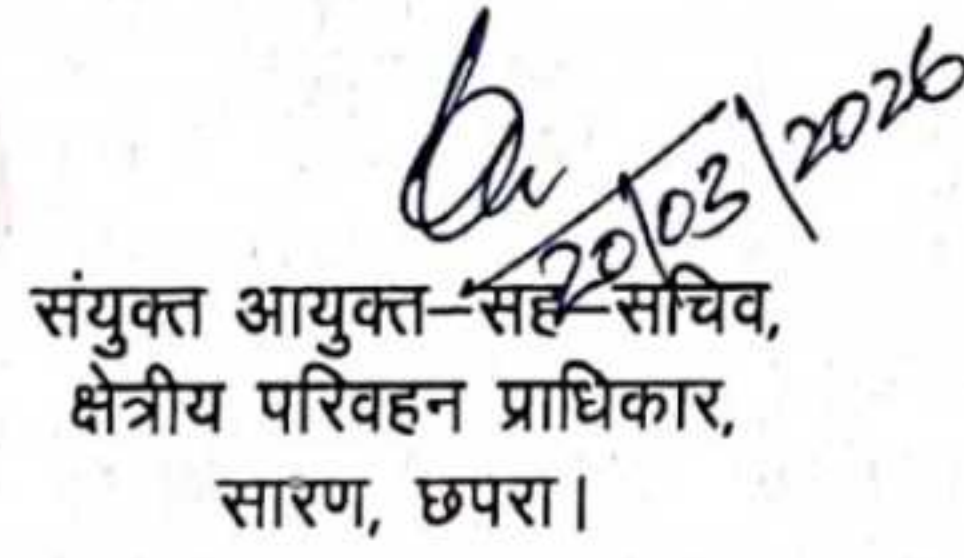 20/03/2026
संयुक्त आयुक्त–सह–सचिव,
क्षेत्रीय परिवहन प्राधिकार,
सारण, छपरा।